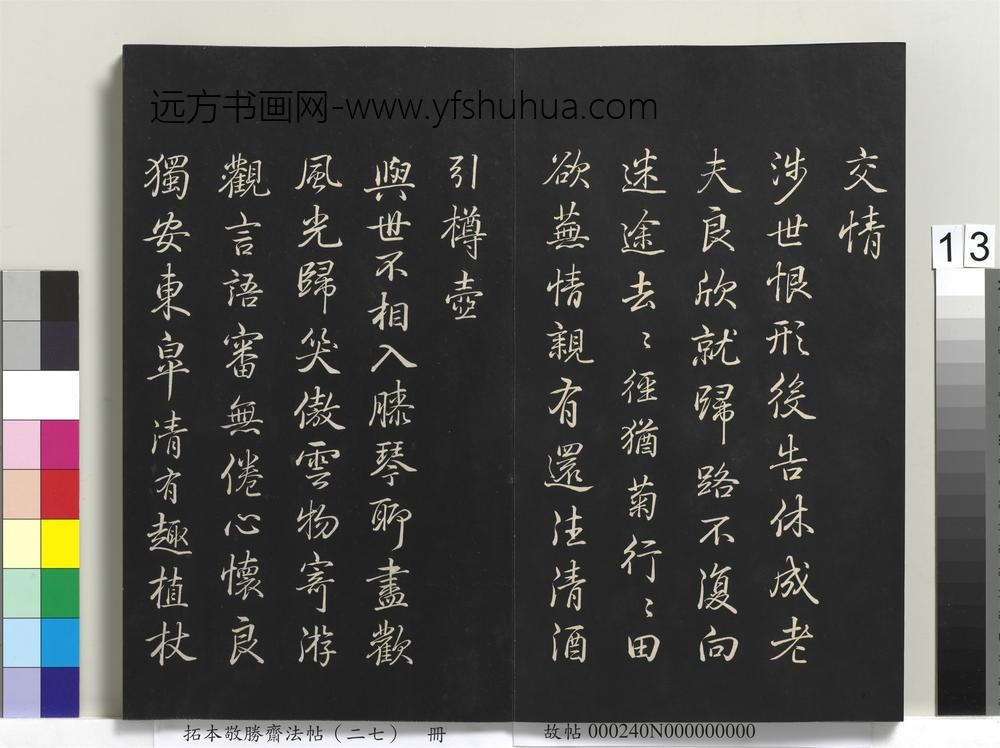 远方书画网-www.yfshuhua.com
交情
涉世恨形役告休成老
夫良欣就歸路不復向
迷途去〻徑猶菊行〻田
欲蕪情親有還往清酒
引樽壺
與世不相入膝琴聊盡歡
風光歸笑傲雲物寄游
觀言語審無倦心懷良
獨安東皋清有趣植杖
13
拓本敬勝齋法帖（二七） 冊
故帖 000240N000000000